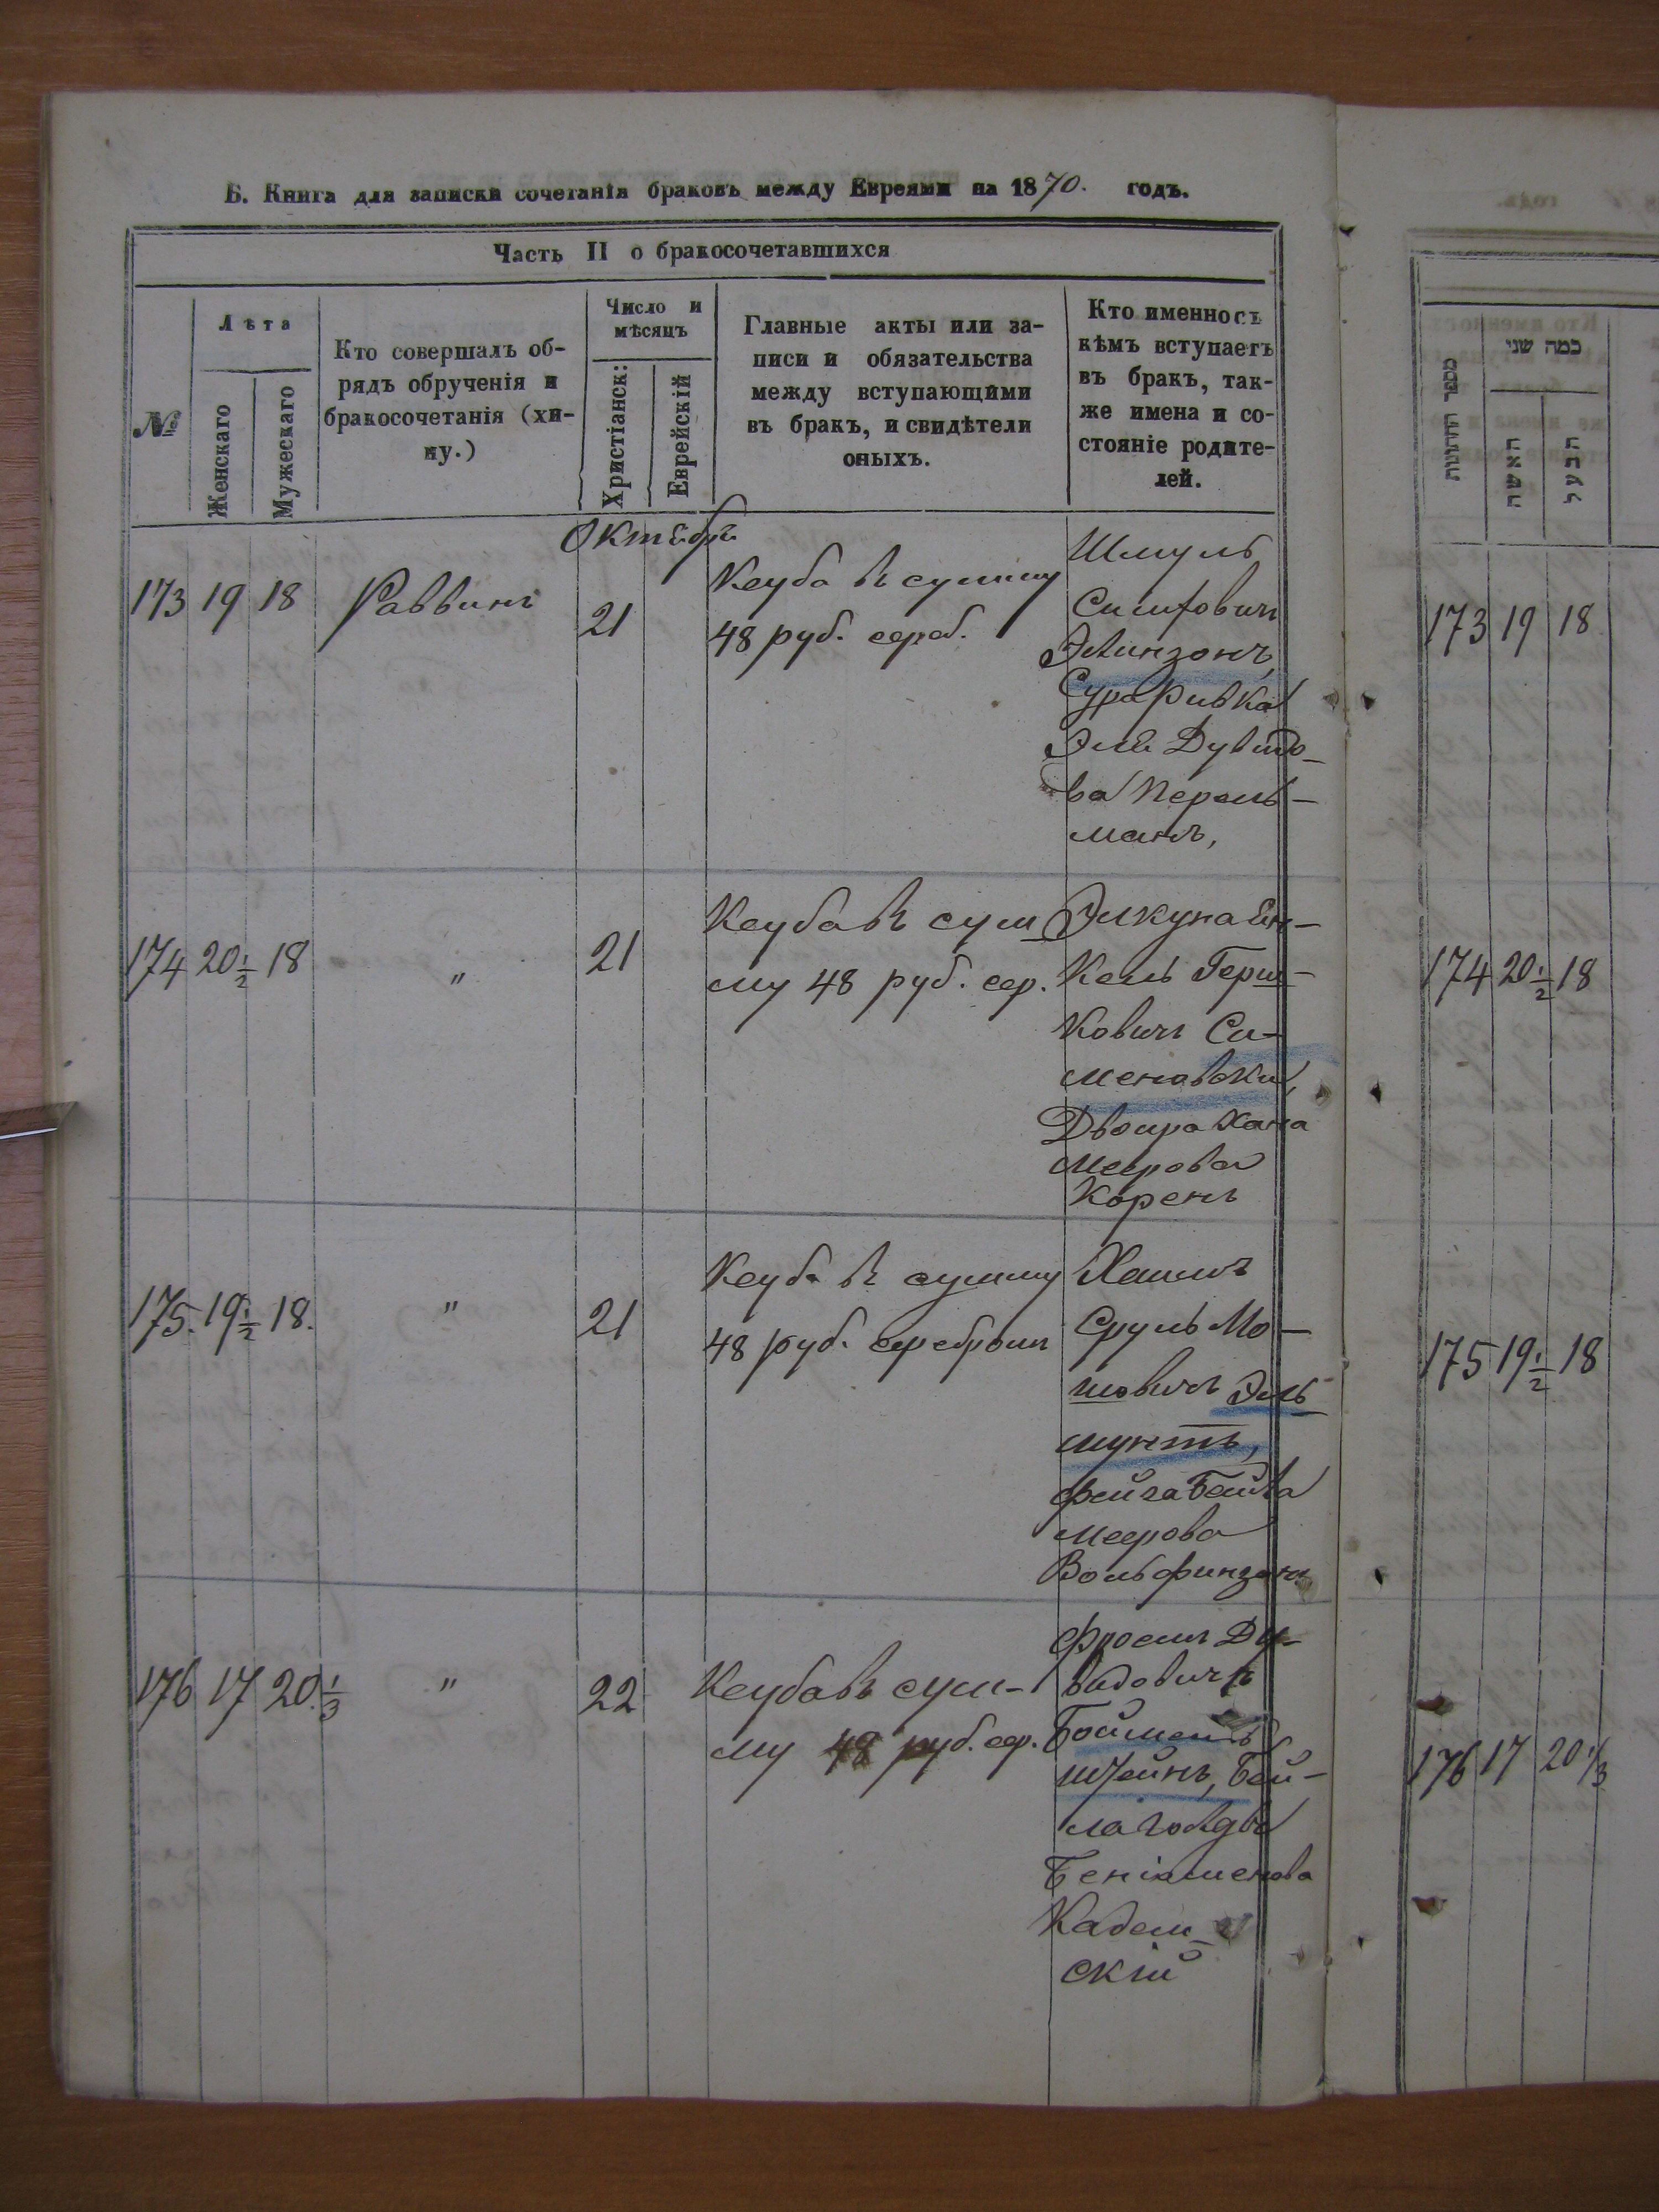 Б. Книга для записки сочетанія браковъ между Евреями на 1870. годъ.
Часть II о бракосочетавшихся
№
Лѣта
Женскаго
Мужескаго
Кто совершалъ об-
рядъ обрученія и
бракосочетанія (хи-
пу.)
Число и
мѣсяцъ
Христіанск:
Еврейскій
Главные акты или за-
писи и обязательства
между вступающими
въ бракъ, и свидѣтели
оныхъ.
Кто именно съ
кѣмъ вступаетъ
въ бракъ, так-
же имена и со-
стояніе родите-
лей.
Октябрь
173 19 18 Раввинъ 21
Кеуба въ сумму
48 руб. сереб.
Шмуль
Элинзонъ,
Сура Ривка
Эле Дувидо-
ва Перель-
манъ,
174 20 1/2 18 " 21
Кеуба въ сум
му 48 руб. сер.
Элкуна Ян-
кель Герш-
ковичъ Си-
меновскій,
Двойра Хана
Меерова
Коренъ
175. 19 1/2 18. " 21
Кеуба въ сумму
48 руб. серебромъ
Хаимъ
Сруль Мо-
шовичъ Эль
мунтъ,
Фейга Бейла
Меерова
Вольфинзонъ
176 17 20 1/3 " 22
Кеуба въ сум-
му 48 руб. сер.
Фроимъ Ду-
видовичъ
штейнъ, Бей-
ла Голда
Беніаменова
Кадем-
скій
כמה שני
מספר החתונות
האשה
הבעל
173 19 18
174 20 1/2 18
175 19 1/2 18
176 17 20 1/3